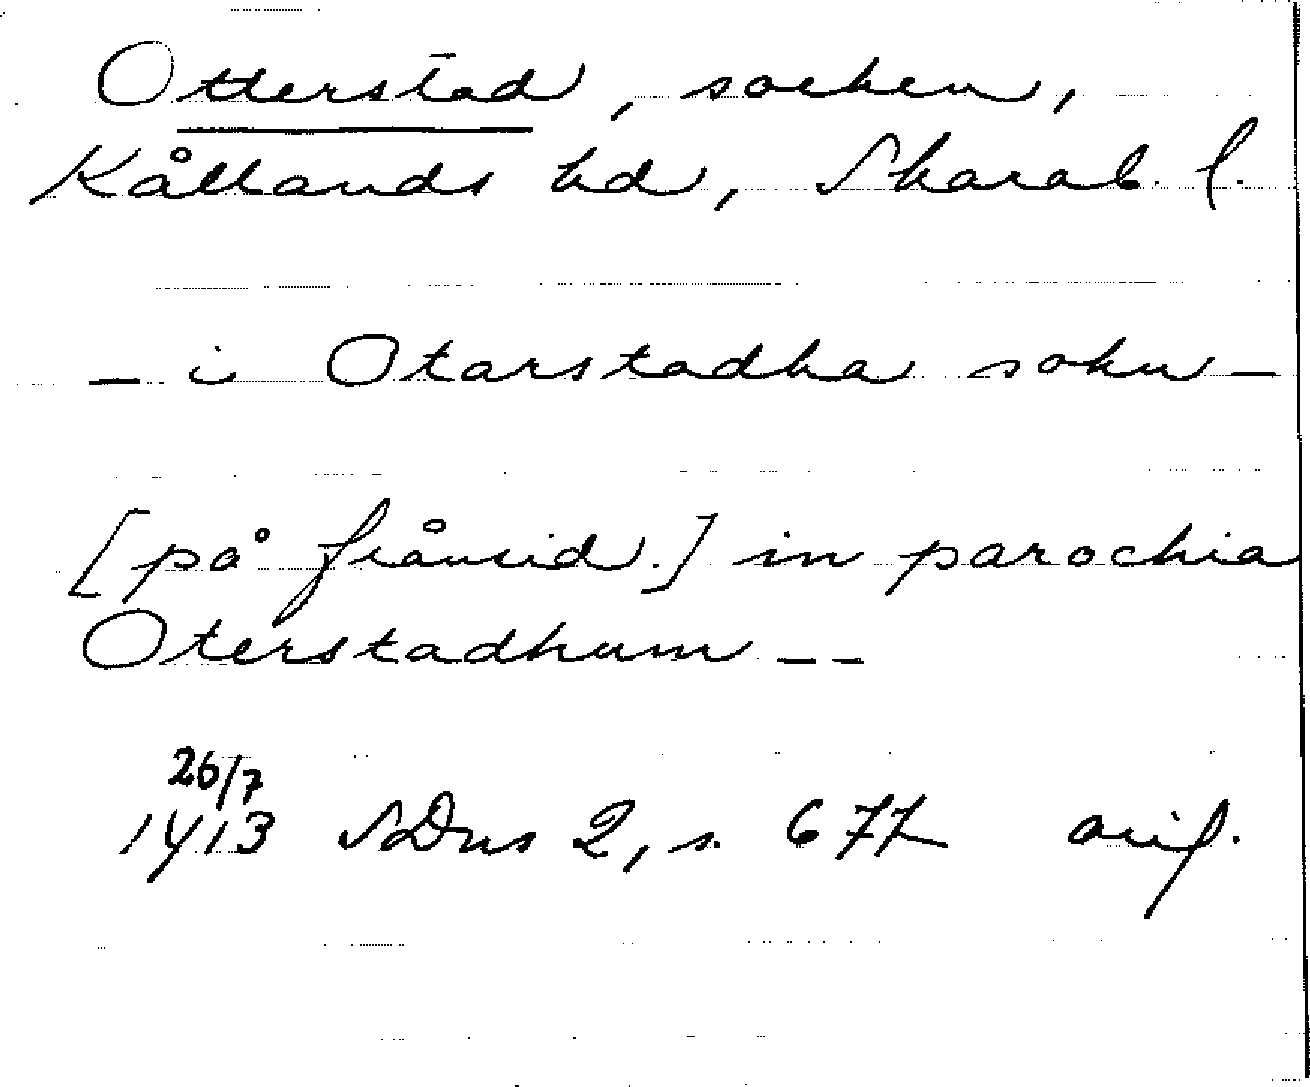 Otterstad, socken,
Kållands hd, Skarab. l.
– i Otarstadha sokn –
[på frånsid.] in parochia
Oterstadhum – –
26/7
1413 SDns 2, s. 677 orig.